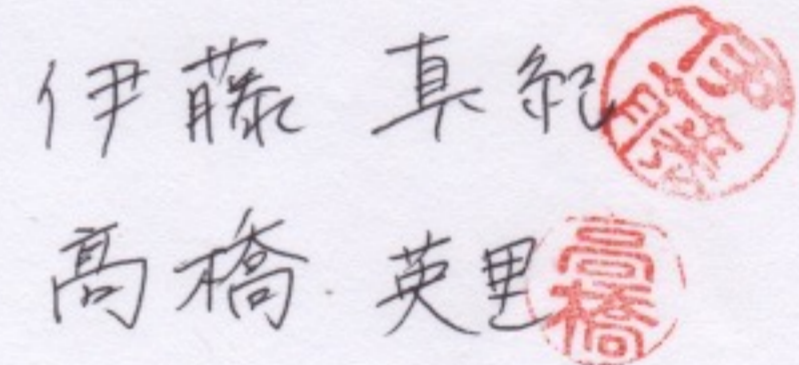 伊藤 真紀 伊藤
髙橋 英里 高橋